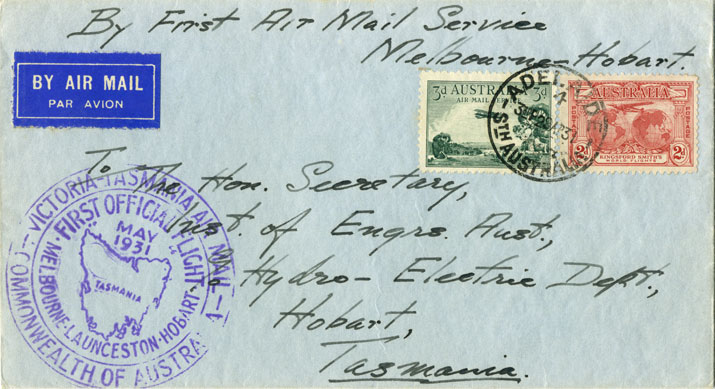 By First Air Mail Service
Melbourne-Hobart.
BY AIR MAIL
PAR AVION
3d AUSTRALIA 3d
AIR MAIL SERVICE
ADELAIDE
STH AUSTRALIA
AUSTRALIA
POSTAGE
2d
KINGSFORD SMITH'S
WORLD FLIGHTS
To The Hon. Secretary,
Inst. of Engrs. Aust.,
Hydro-Electric Dept.,
Hobart,
Tasmania.
VICTORIA-TASMANIA AIR MAIL
COMMONWEALTH OF AUSTRALIA
FIRST OFFICIAL FLIGHT
MELBOURNE-LAUNCESTON-HOBART
MAY
1931
TASMANIA